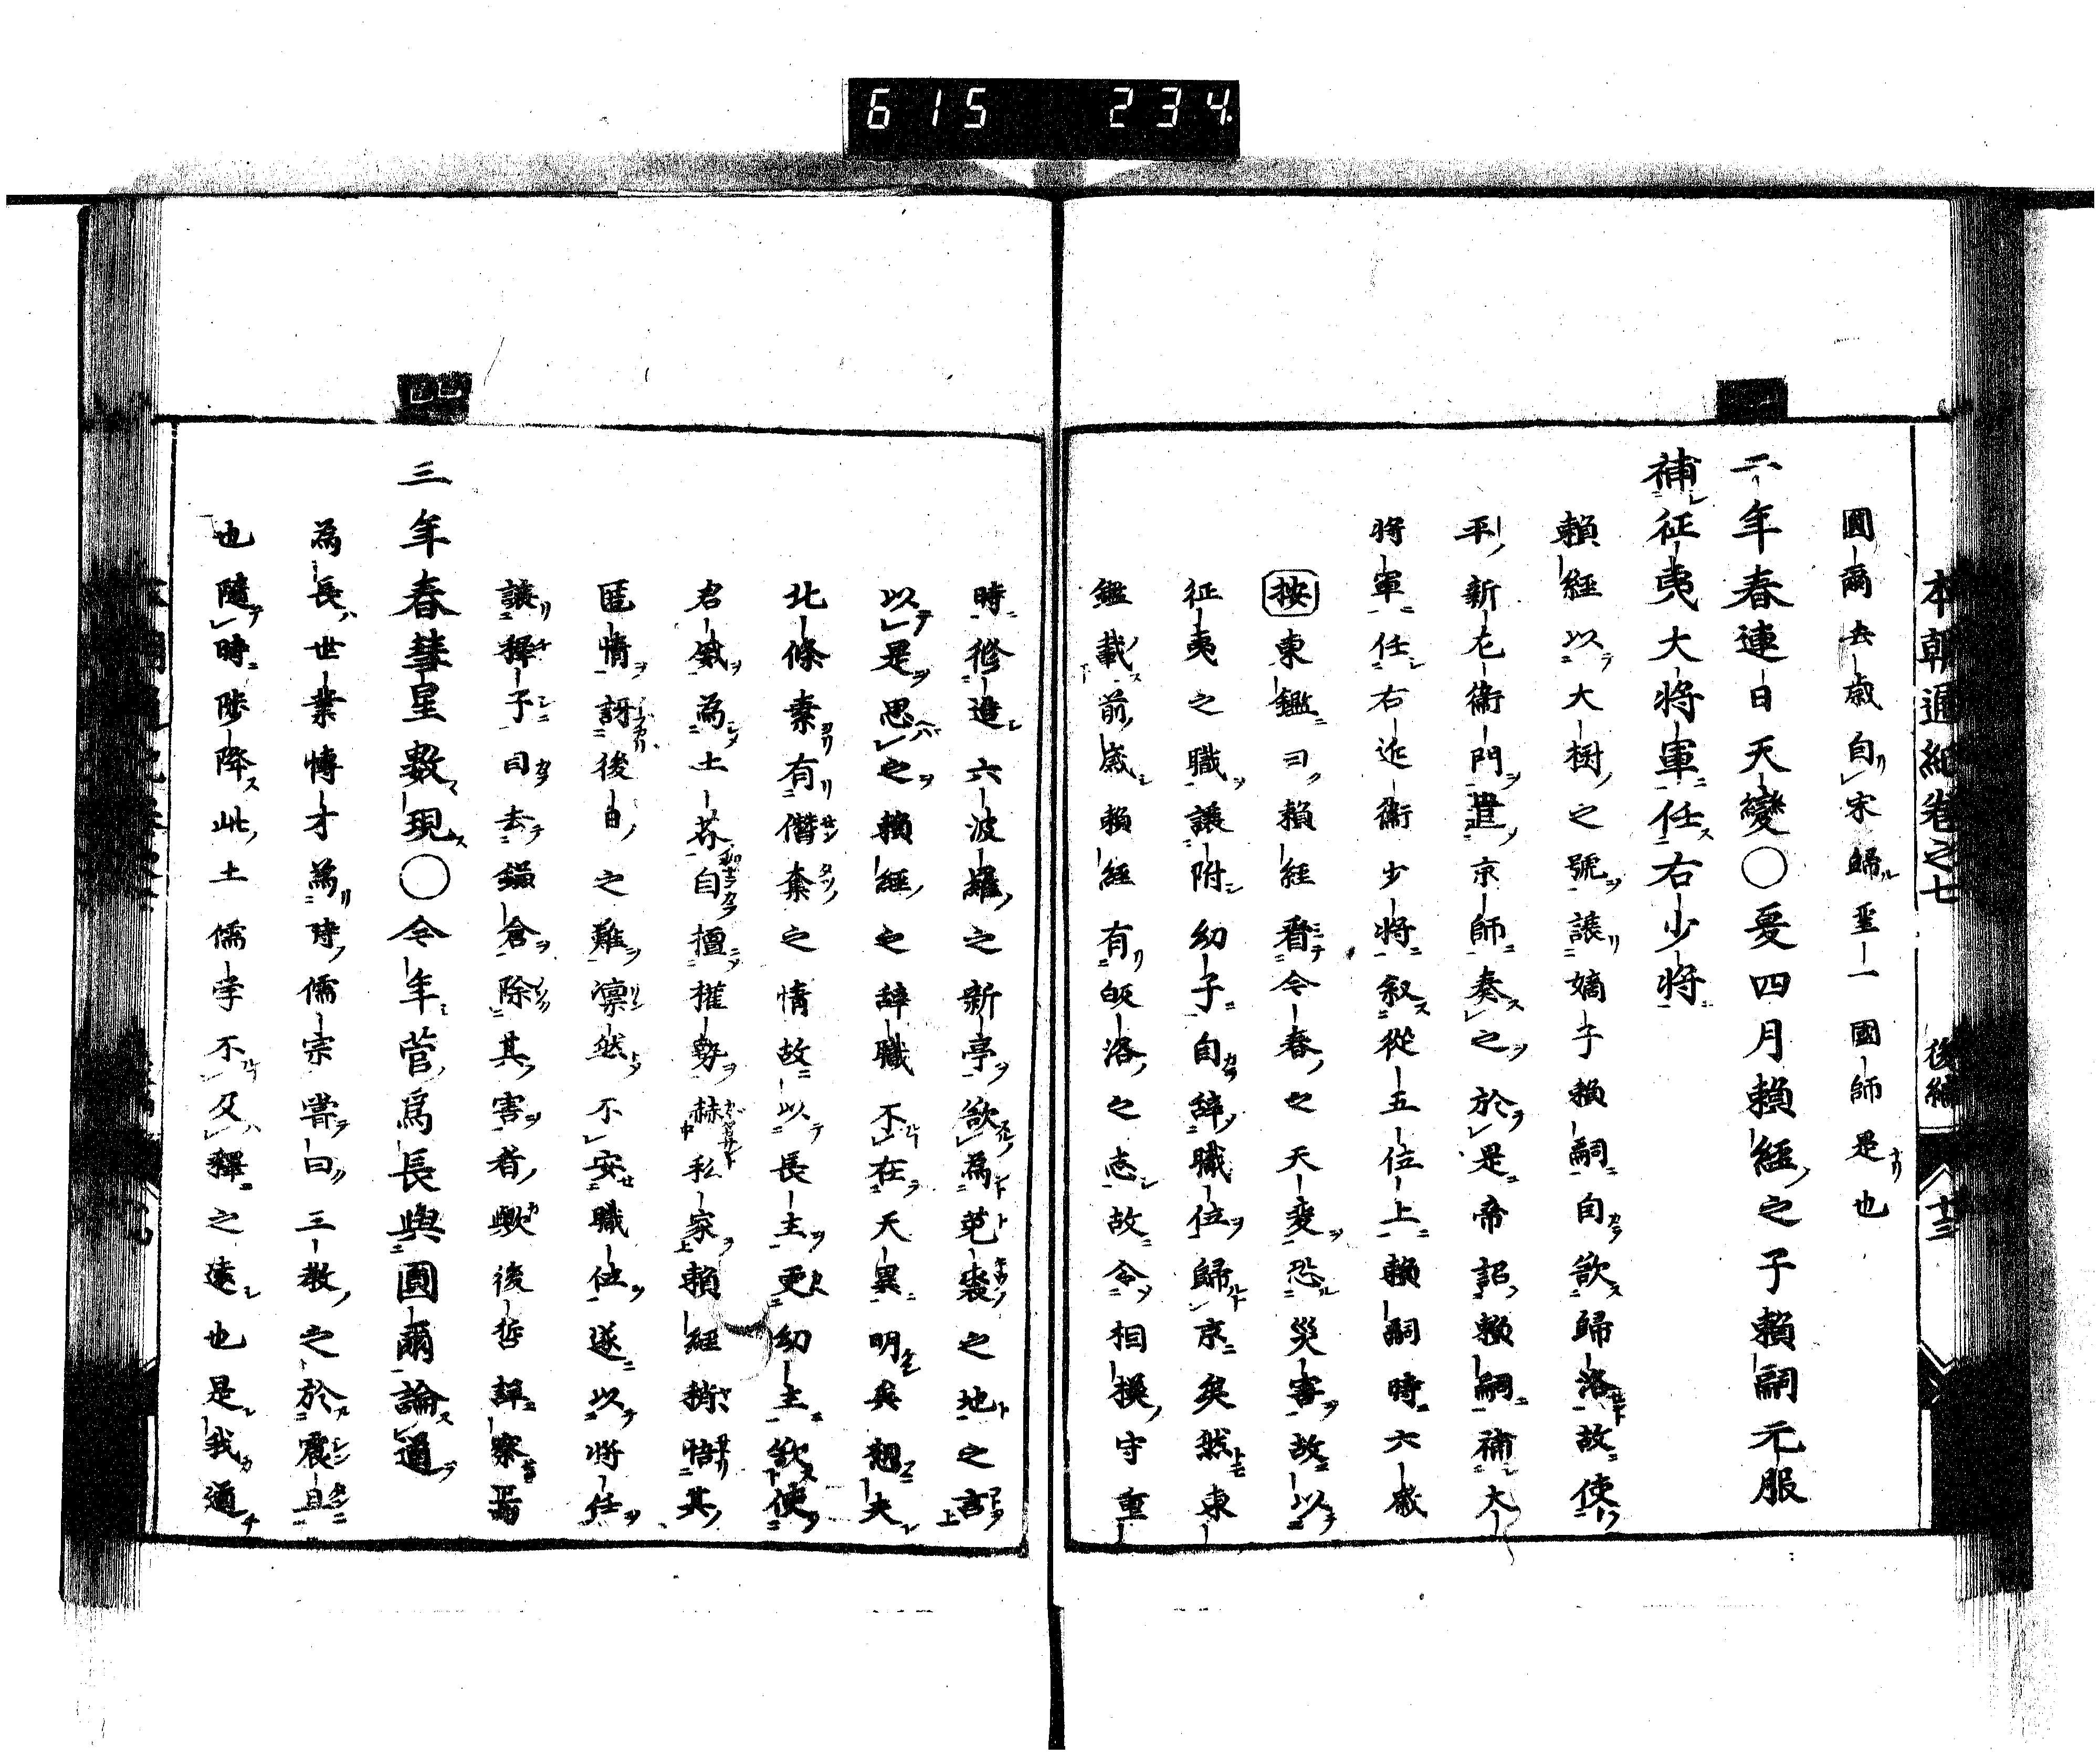 615 234
本朝通紀卷之七 後編 廿三
圓爾去歳自宋歸聖一國師是也
二年春連日天變○夏四月賴經之子賴嗣元服
補征夷大將軍任右少將
賴經以大樹之號讓嫡子賴嗣自欲歸洛故使
平新左衞門 京師奏之於是帝詔賴嗣補大
將軍任右近衞少將叙從五位上賴嗣時六歳
按東鑑曰賴經看今春之天変恐災害故以
征夷之職讓附幼子自辞職位歸京矣然東
鑑載前歳賴經有皈洛之志故令相摸守重
時修造六波羅之新亭欲為菟裘之地之言
以是思之賴經之辞職不在天異明矣想夫
北條素有僭 之情故以長主更幼主欲使
君威為土芥自擅権勢赫私家賴經稍悟其
匿情訝後日之難凛然不安職位遂以將任
讓穉子自去鎌倉除其害者歟後哲詳察焉
三年春彗星數現○今年菅爲長與圓爾論道
為長世業博才為時儒宗嘗曰三教之於震旦
也隨時陟降此土儒学不及釋之遠也是我道